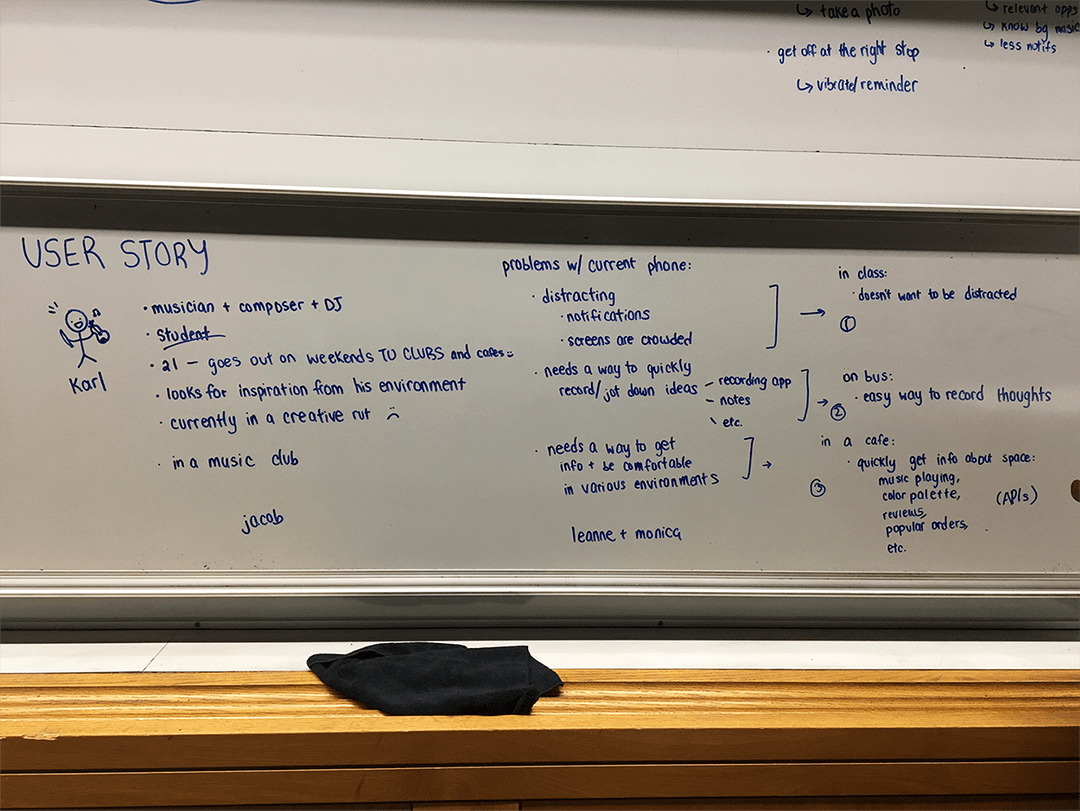 ↳ take a photo
· get off at the right stop
↳ vibrate/reminder
↳ relevant apps
↳ know bg music
↳ less notifs
USER STORY
Karl
· musician + composer + DJ
· student
· 21 – goes out on weekends TO CLUBS and cafes
· looks for inspiration from his environment
· currently in a creative rut ☹
· in a music club
jacob
problems w/ current phone:
· distracting
· notifications
· screens are crowded
· needs a way to quickly
record/jot down ideas
– recording app
– notes
\ etc.
· needs a way to get
info + be comfortable
in various environments
leanne + monica
in class:
· doesn't want to be distracted
①
on bus:
· easy way to record thoughts
②
in a cafe:
· quickly get info about space:
③
music playing,
color palette, (APIs)
reviews,
popular orders,
etc.